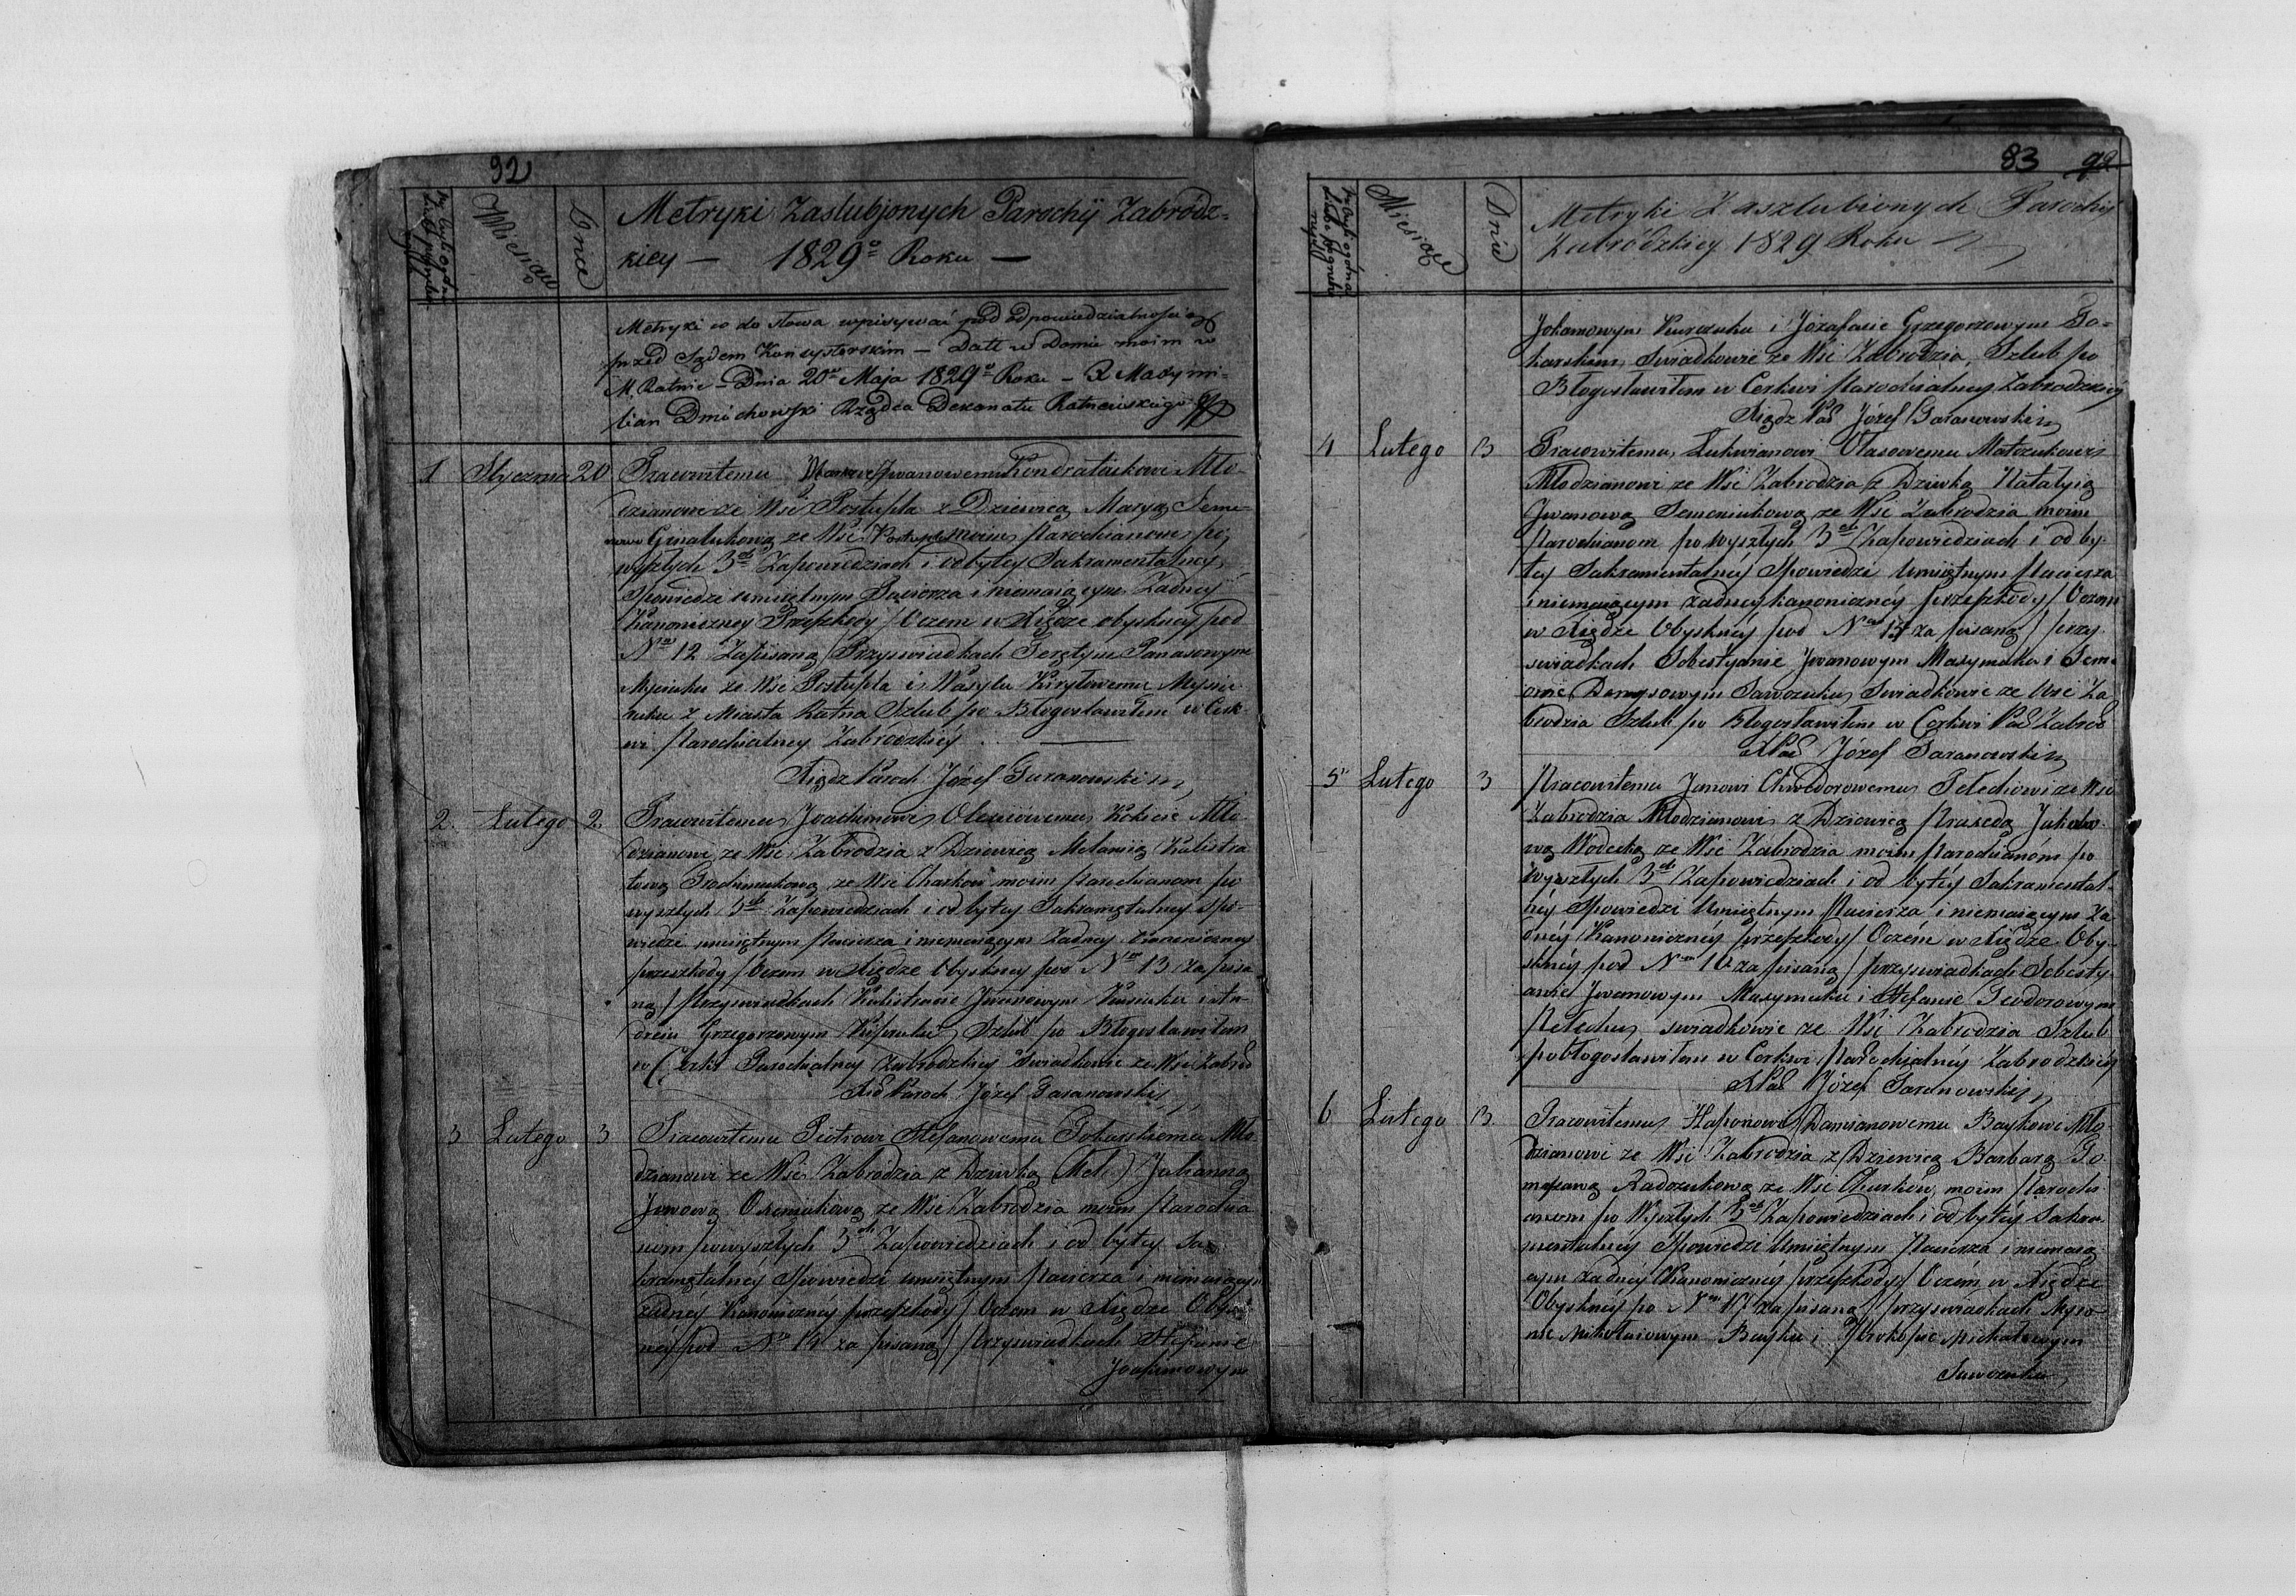 92
Miesiąc
Dnie
Metryki Zaslubjonych Parochij Zabródz-
kiey — 1829o Roku —
Metryki co do słowa wpisywać pod odpowiedzialnością
przed Sądem Konsystorskim — Datt w Domie moim w
M. Ratnie — Dnia 20o Maja 1829o Roku — X Maxymi-
lian Dmochowski Rządca Dekanatu Ratneńskiego
1 Stycznia 20 Pracowitemu Iwanowemu Kondratiukowi Mło-
dzianowi ze Wsi Postupla z Dziewicą Maryą Seme-
ze Wsi moim Parochianom po
wyszłych 3ch Zapowiedziach i odbytey Sakramentalney
Spowiedzi umiejętnym Pacierza i niemaiącym Żadney
Kanoniczney Przeszkody / Oczem w Xiędze obyskney pod
Nm 12 Zapisaną / Przyswiadkach Panasowym
ze Wsi Postupla i Wasylu Kiryłowemu
z Miasta Ratna Szlub po Błogosławiłem w Cerk-
wi Parochialney Zabrodzkiey
Xiądz Paroch Józef Taranowski
2. Lutego 2. Pracowitemu Joachimowi Mło-
dzianowi ze Wsi Zabrodzia z Dziewicą Melanią Kalistra
tową ze Wsi Charkow moim Parochianom po
wyszłych 3ch Zapowiedziach i odbytey Sakramętalney Spo-
wiedzi umiejętnym Pacierza i niemaiącym Żadney Kanoniczney
przeszkody / Oczem w Xiędze Obyskney pod Nm 13 zapisa
ną / Przyswiadkach Kalistracie Iwanowym i An-
dreiu Grzegorzowym Szlub po Błogosławiłem
w Cerkwi Parochialney Zabrodzkiey Swiadkowie ze Wsi Zabrod
Xd Paroch Józef Taranowski
3 Lutego 3 Pracowitemu Piotrowi Stefanowemu Tokarskiemu Mło-
dzianowi ze Wsi Zabrodzia z Dziwką Julianną
ze Wsi Zabrodzia moim Parochia
nom powyszłych 3ch Zapowiedziach i od bytey Sa-
kramętalnéy Spowiedzi umiejętnym Pacierza i niemaiącym
żadnéy Kanonicznéy przeszkody / Oczem w Xiędze Obysk
néy pod Nm 14 za pisaną / Przyswiadkach Stefanie
Joachimowym
83 92
Miesiące
Dnie
Metryki Zaszlubionych Parochij
Zabródzkiey 1829 Roku
i Józafacie Grzegorzowym To-
karskim Swiadkowie ze Wsi Zabrodzia, Szlub po
Błogosławiłem w Cerkwi Parochialney Zabrodzkiey
Xiądz Par Józef Taranowski
4 Lutego 3 Pracowitemu Łukianowi Ołasowemu
Młodzianowi ze Wsi Zabrodzia z Dziwką Natalyią
Iwanową Semeniukową ze Wsi Zabrodzia moim
Parochianom po wyszłych 3ch Zapowiedziach i od by-
tey Sakramentalney Spowiedzi umiejętnym Pacierza
i niemaiącym żadney kanonicznéy przeszkody / Oczem
w Xiędze Obysknéy pod Nm 15 za pisaną / przy
swiadkach Sobestyanie Iwanowym Maxymuku i Sem-
enie Denysowym Sawczuku Swiadkowie ze Wsi Za
brodzia Szlub po Błogosławiłem w Cerkwi Par Zabrod
X Par Józef Taranowski
5 Lutego 3 Pracowitemu Janowi Chwedorowemu Pełechowi ze Wsi
Zabrodzia Młodzianowi z Dziewicą Praxedą Jakubo-
wą ze Wsi Zabrodzia moim Parochianóm po
Wyszłych 3ch Zapowiedziach i od bytéy Sakramental-
néy Spowiedzi umiejętnym Pacierza i niemaiącym Ża
dnéy Kanonicznéy przeszkody / Oczém w Xiędze Oby-
sknéy pod Nm 16 za pisaną / przyswiadkach Sebesty-
anie Iwanowym Maxymuku i Stefanie Teodorowym
Pełechu swiadkowie ze Wsi Zabrodzia Szlub
pobłogosławiłem w Cerkwi Parochialnéy Zabrodzkiéy
X Par Józef Taranowski
6 Lutego 3 Pracowitemu Haponowi Damianowemu Baykowi Mło-
dzianowi ze Wsi Zabrodzia z Dziewicą Barbarą To
maszową Radczukową ze Wsi Charków moim Parochi
anom po Wyszłych 3ch Zapowiedziach i od bytéy Sakra
mentalnéy Spowiedzi umiejętnym Pacierza i niemaią
cym żadnéy Kanonicznéy przeszkody / Oczém w Xiędze
Obysknéy po Nm 17 za pisaną / przyswiadkach
Mikołaiowym Bayku i Prokopie Michałowym
Sawczuku